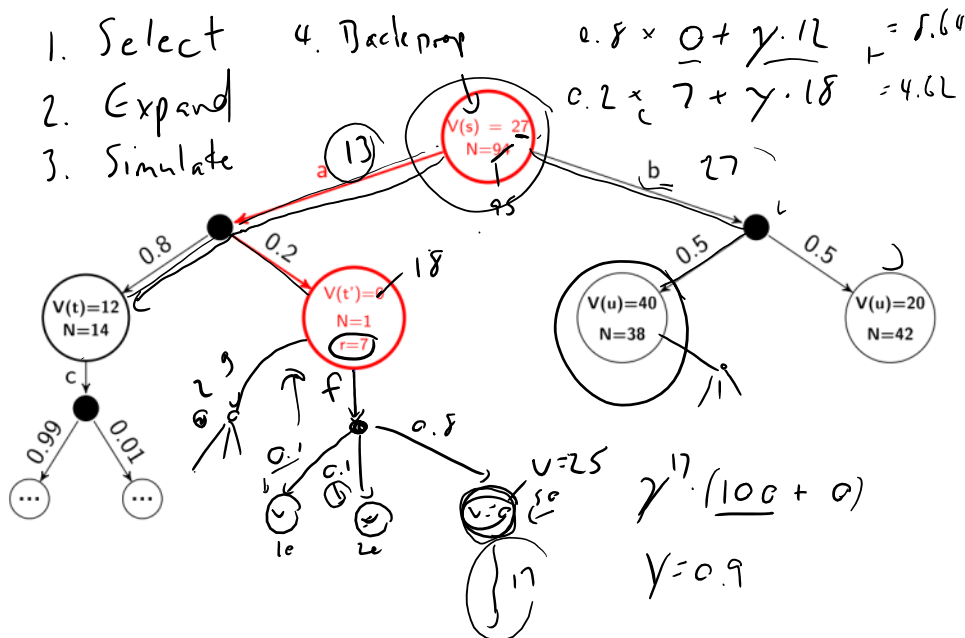 1. Select
2. Expand
3. Simulate
4. Backprop
0.8 × 0 + γ·12 = 8.64
0.2 × 7 + γ·18 = 4.62
V(s) = 27
N=94
95
a
13
b
27
0.8
0.2
0.5
0.5
V(t)=12
N=14
V(t')=0
18
N=1
r=7
V(u)=40
N=38
V(u)=20
N=42
c
0.99
0.01
...
...
f
0.1
0.1
0.8
V=25
V=0
17
γ¹⁷·(100 + 0)
γ=0.9